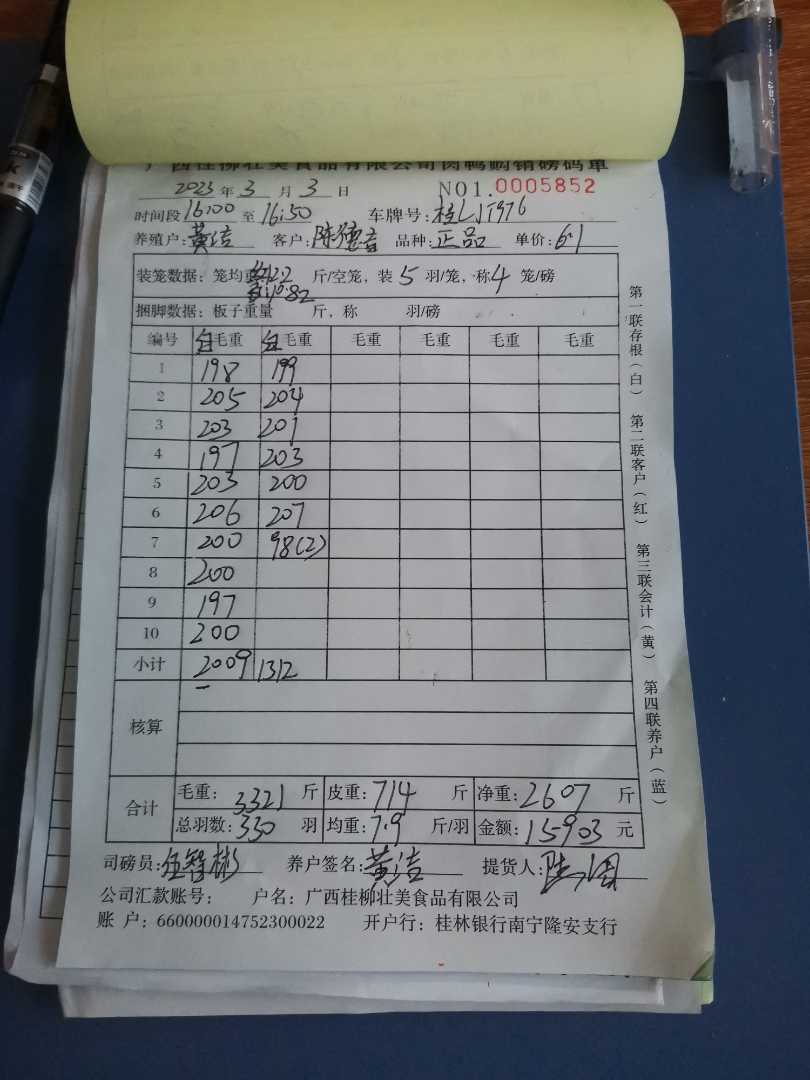 广西桂柳壮美食品有限公司肉鸭购销磅码单
2023年3月3日 NO1.0005852
时间段16:00至16:50 车牌号:桂LJT976
养殖户:黄洁 客户:陈德 品种:正品 单价:6.1
装笼数据:笼均重 12.2 斤/空笼,装5羽/笼,称4笼/磅
10.82
捆脚数据:板子重量 斤,称 羽/磅
编号 毛重 毛重 毛重 毛重 毛重 毛重
1 198 199
2 205 204
3 203 201
4 197 203
5 203 200
6 206 207
7 200 98(2)
8 200
9 197
10 200
小计 2009 1312
核算
合计 毛重:3321斤 皮重:714斤 净重:2607斤
总羽数:330羽 均重:7.9斤/羽 金额:15903元
司磅员:伍智彬 养户签名:黄洁 提货人:
公司汇款账号: 户名:广西桂柳壮美食品有限公司
账 户:660000014752300022 开户行:桂林银行南宁隆安支行
第一联存根(白) 第二联客户(红) 第三联会计(黄) 第四联养户(蓝)